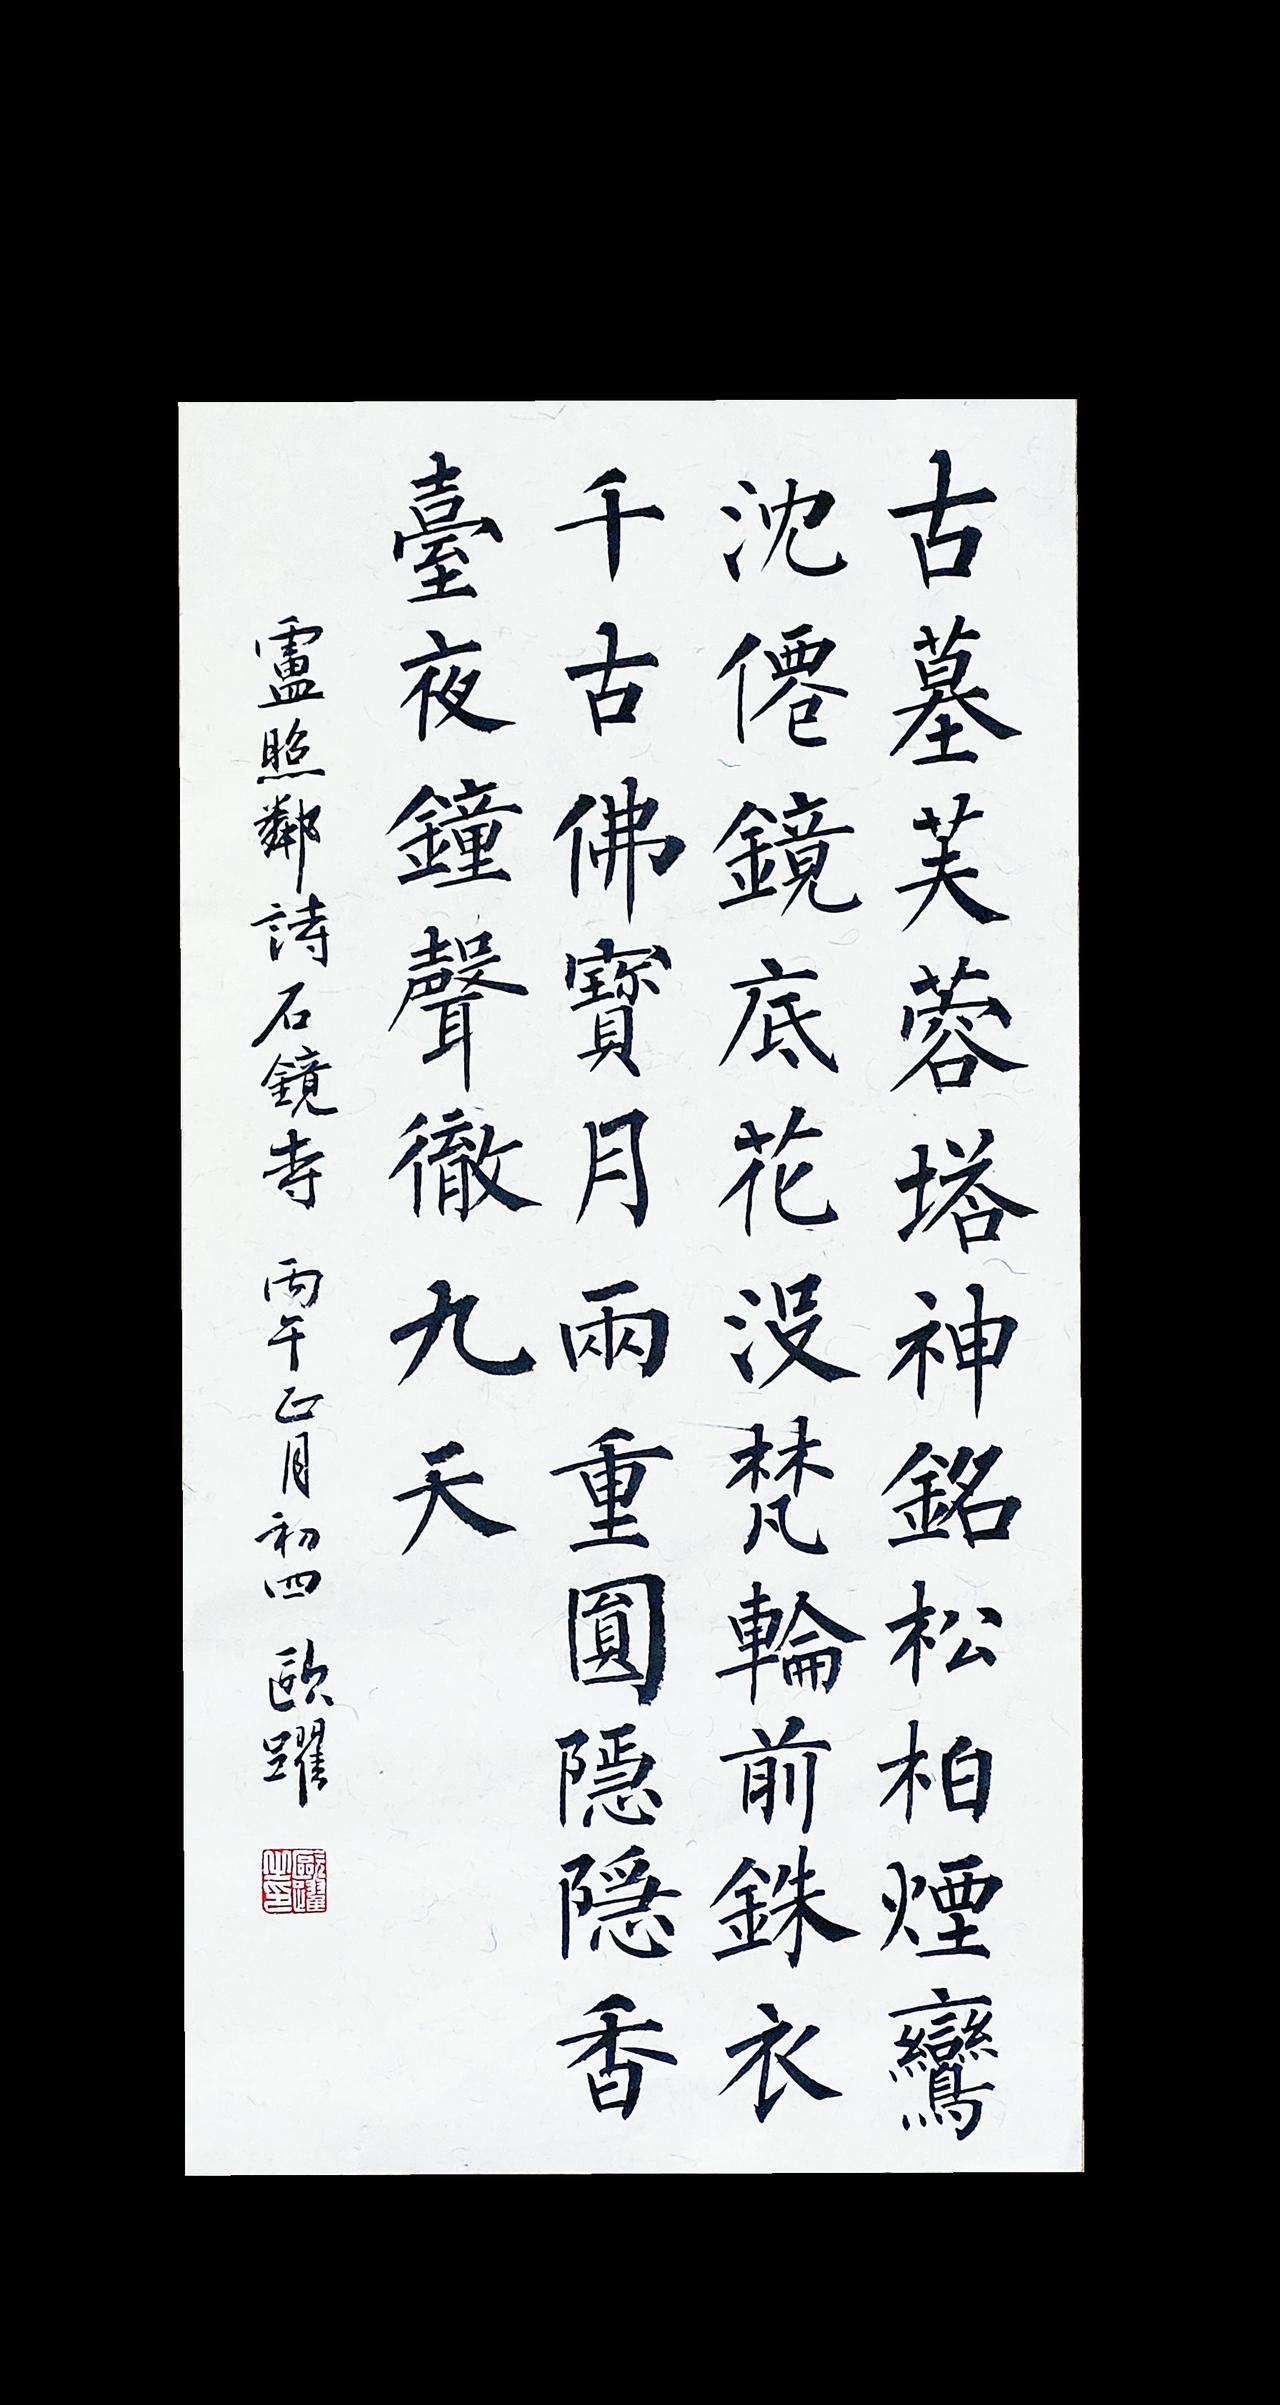 古墓芙蓉塔神銘松柏煙鸞
沈僊鏡底花没梵輪前銖衣
千古佛寶月兩重圓隱隱香
臺夜鐘聲徹九天
盧照鄰詩石鏡寺 丙午正月初四 歐躍
歐躍之印